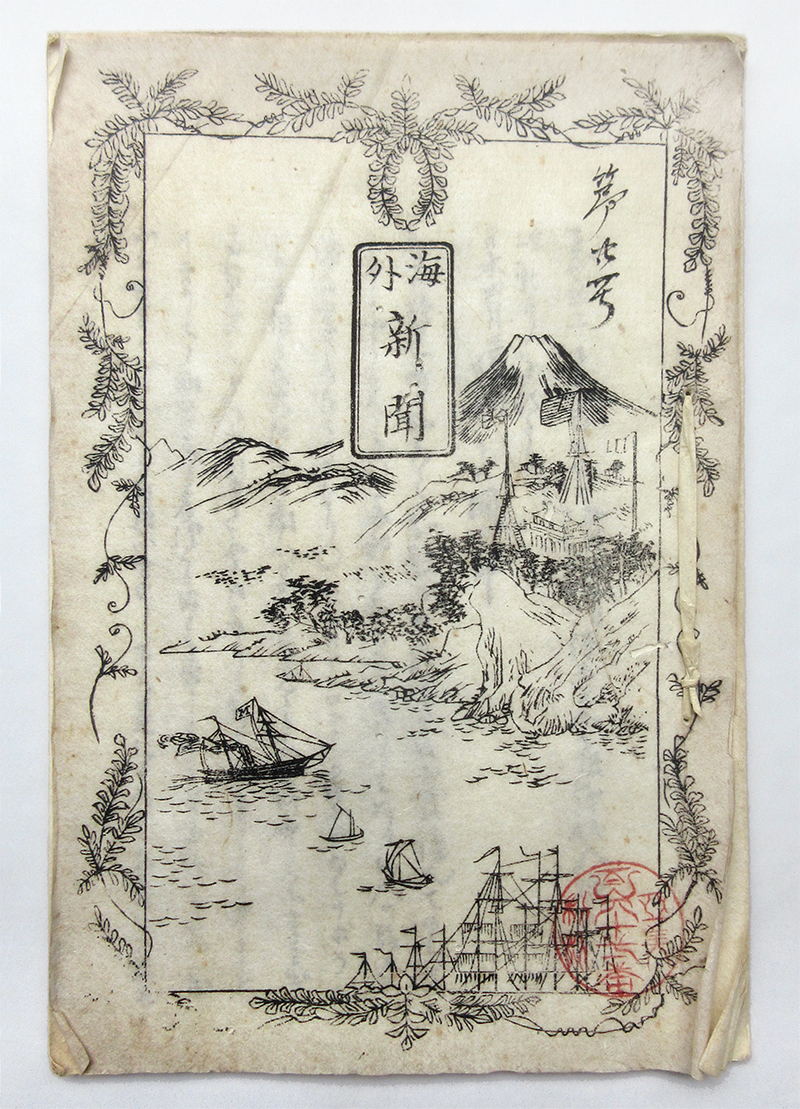 第廿号
海外
新聞